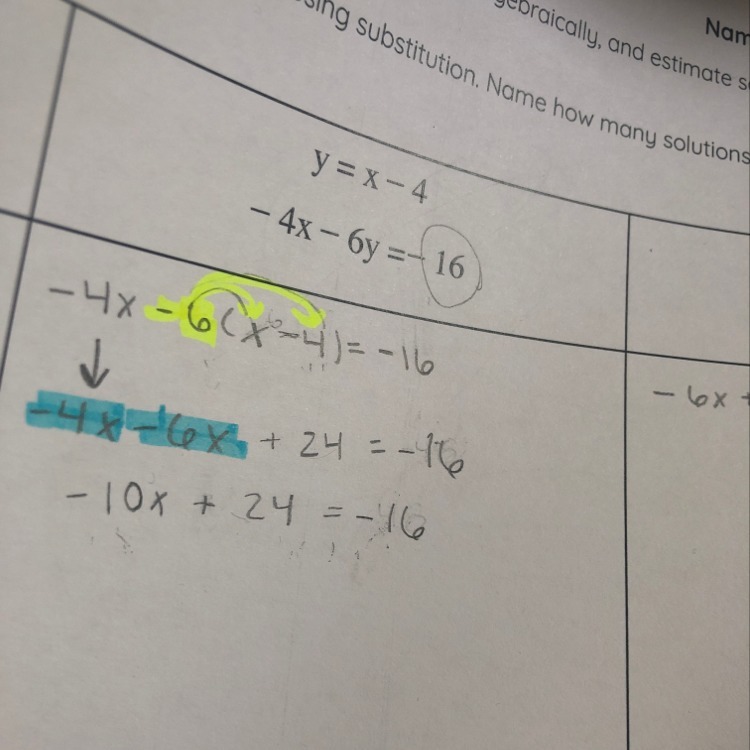 Nam
gebraically, and estimate s
sing substitution. Name how many solutions
y = x – 4
– 4x – 6y = – 16
-4x - 6(x - 4) = -16
-4x - 6x + 24 = -16
-10x + 24 = -16
- 6x +